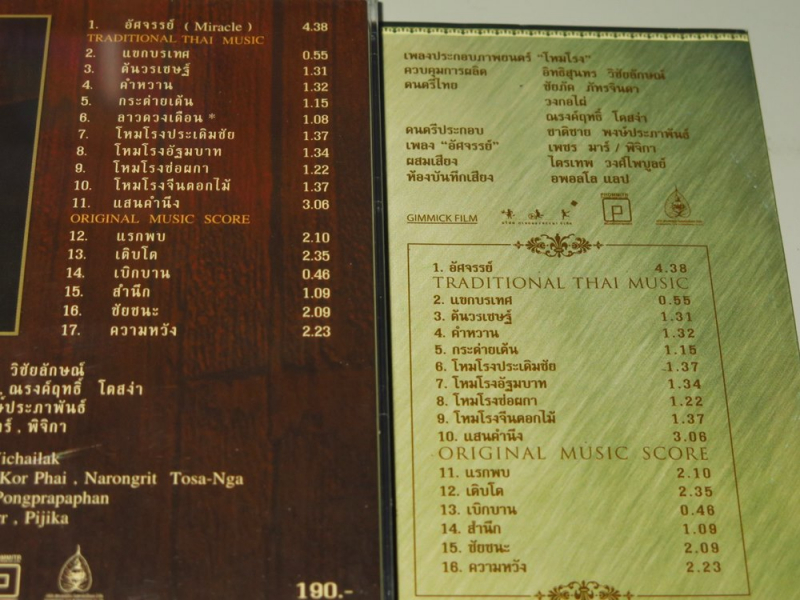 1. อัศจรรย์ ( Miracle ) 4.38
TRADITIONAL THAI MUSIC
2. แขกบรเทศ 0.55
3. ต้นวรเชษฐ์ 1.31
4. คำหวาน 1.32
5. กระต่ายเต้น 1.15
6. ลาวดวงเดือน * 1.08
7. โหมโรงประเดิมชัย 1.37
8. โหมโรงอัฐมบาท 1.34
9. โหมโรงช่อผกา 1.22
10. โหมโรงจีนดอกไม้ 1.37
11. แสนคำนึง 3.06
ORIGINAL MUSIC SCORE
12. แรกพบ 2.10
13. เติบโต 2.35
14. เบิกบาน 0.46
15. สำนึก 1.09
16. ชัยชนะ 2.09
17. ความหวัง 2.23
วิชัยลักษณ์
ณรงค์ฤทธิ์ โตสง่า
ประภาพันธ์
ร์ , พิจิกา
ichailak
Kor Phai , Narongrit Tosa-Nga
Pongprapaphan
r , Pijika
190.-
เพลงประกอบภาพยนตร์ "โหมโรง"
ควบคุมการผลิต อิทธิสุนทร วิชัยลักษณ์
ดนตรีไทย ชัยภัค ภัทรจินดา
วงกอไผ่
ณรงค์ฤทธิ์ โตสง่า
ดนตรีประกอบ ชาติชาย พงษ์ประภาพันธ์
เพลง "อัศจรรย์" เพชร มาร์ / พิจิกา
ผสมเสียง ไตรเทพ วงศ์ไพบูลย์
ห้องบันทึกเสียง อพอลโล แลป
GIMMICK FILM
1. อัศจรรย์ 4.38
TRADITIONAL THAI MUSIC
2. แขกบรเทศ 0.55
3. ต้นวรเชษฐ์ 1.31
4. คำหวาน 1.32
5. กระต่ายเต้น 1.15
6. โหมโรงประเดิมชัย 1.37
7. โหมโรงอัฐมบาท 1.34
8. โหมโรงช่อผกา 1.22
9. โหมโรงจีนดอกไม้ 1.37
10. แสนคำนึง 3.06
ORIGINAL MUSIC SCORE
11. แรกพบ 2.10
12. เติบโต 2.35
13. เบิกบาน 0.46
14. สำนึก 1.09
15. ชัยชนะ 2.09
16. ความหวัง 2.23